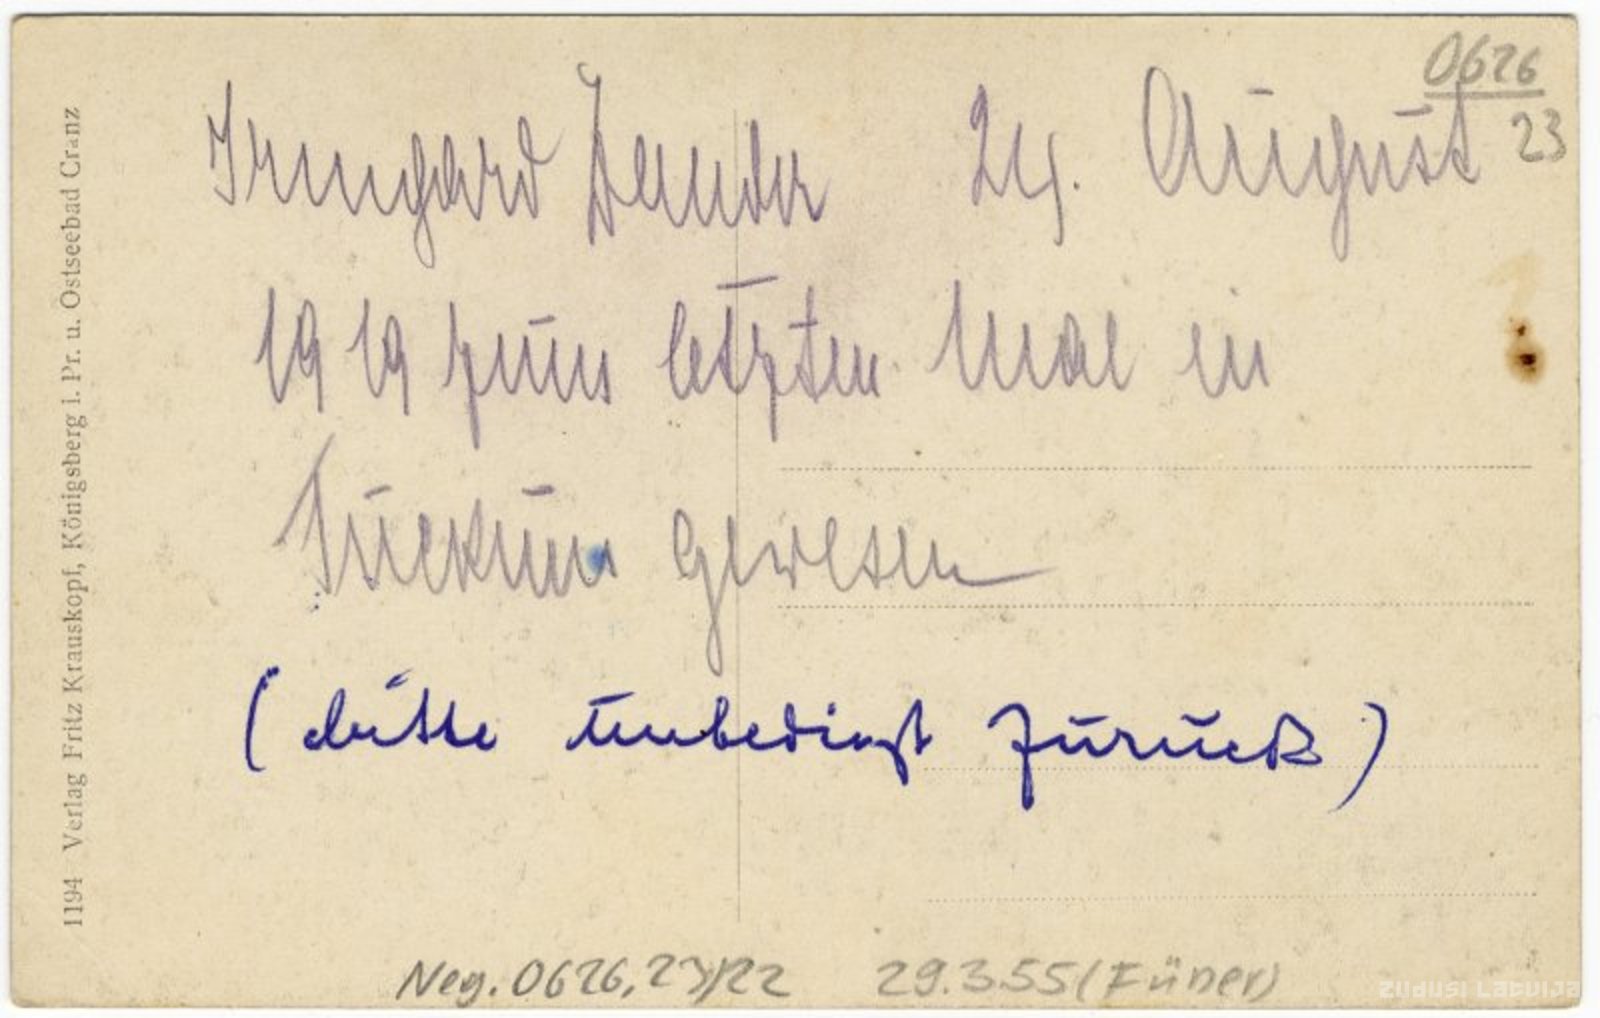 0626
23
Irmgard Zander 24. August
1919 zum letzten Mal in
Tuckum gewesen
(bitte unbedingt zurück)
Neg. 0626,23/22 29.3.55 (Füner)
1194 Verlag Fritz Krauskopf, Königsberg i. Pr. u. Ostseebad Cranz
ZUDUSI LATVIJA